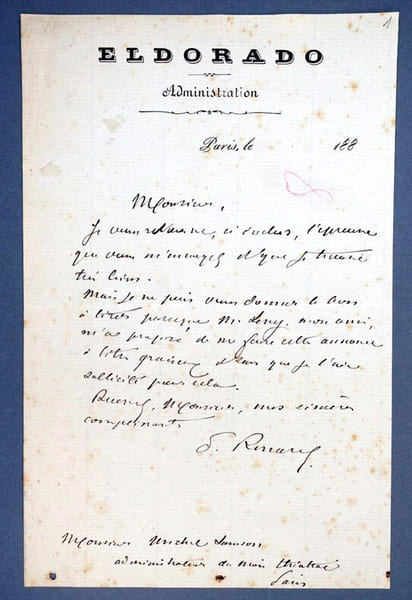 1
ELDORADO
Administration
Paris, le 188
Monsieur,
Je vous retourne, ci inclus, l'épreuve
que vous m'envoyez et que je trouve
très bien.
Mais je ne puis vous donner le bon
à tirer parce que Mr Lévy, mon ami,
m'a proposé de me faire cette annonce
à titre gracieux sans que je l'aie
sollicité pour cela.
Recevez, Monsieur, mes sincères
compliments
Renard
Monsieur Michel
administrateur du
Paris